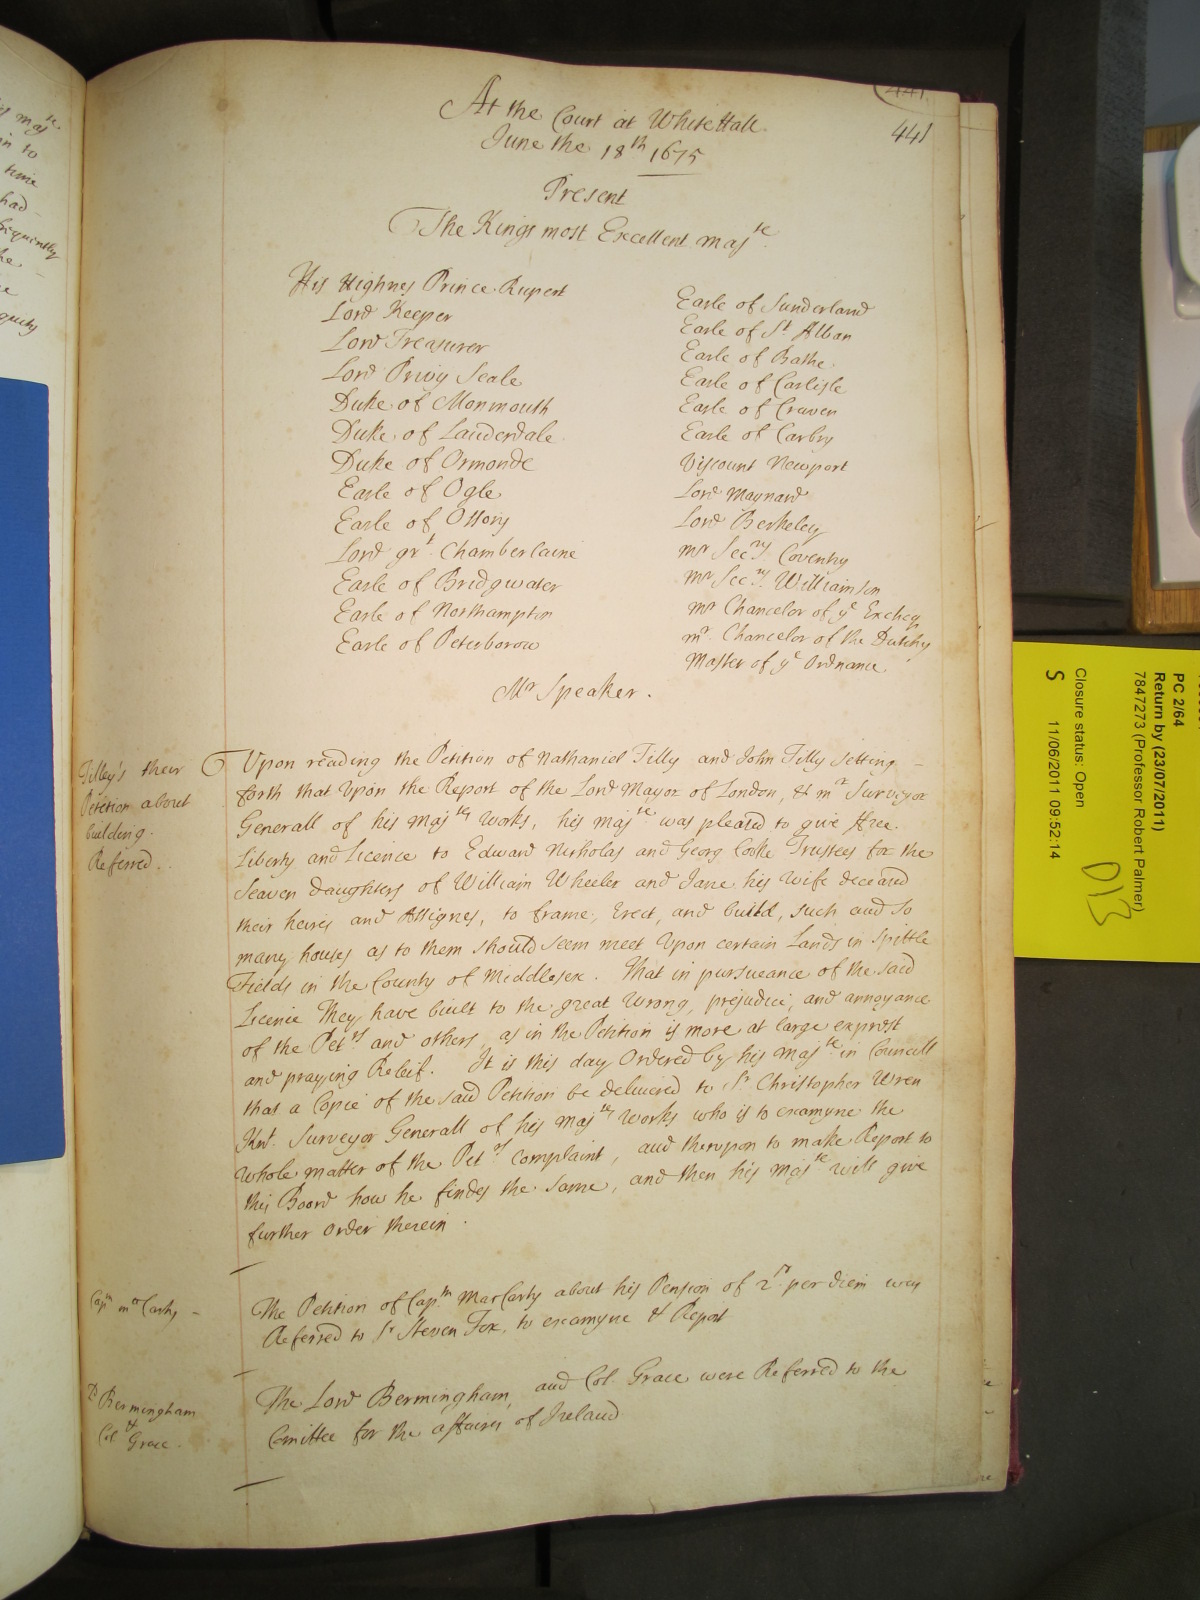 441
At the Court at WhiteHall
June the 18th 1675
441
Present
The Kings most Excellent Majte
His Highnes Prince Rupert
Lord Keeper
Lord Treasurer
Lord Privy Seale
Duke of Monmouth
Duke of Lauderdale
Duke of Ormonde
Earle of Ogle
Earle of Ossory
Lord grt. Chamberlaine
Earle of Bridgwater
Earle of Northampton
Earle of Peterborow
Earle of Sunderland
Earle of St Alban
Earle of Bathe
Earle of Carlisle
Earle of Craven
Earle of Carbry
Viscount Newport
Lord Maynard
Lord Berkeley
Mr Secry. Coventry
Mr Secry. Williamson
Mr Chancelor of ye Excheq
Mr. Chancelor of the Dutchy
Master of ye Ordnance
Mr Speaker.
Tilley's their
Petition about
building.
Referred.
Upon reading the Petition of Nathaniel Tilly and John Tilly setting
forth that Upon the Report of the Lord Mayor of London, & Mr Surveyor
Generall of his Majtys Works, his Majte was pleased to give free
Liberty and Licence to Edward Nicholas and Georg Cooke Trustees for the
Seaven Daughters of William Wheeler and Jane his Wife deceased
their heires and Assignes, to frame, Erect, and build, such and so
many houses as to them should seem meet Upon certain Lands in Spittle
Fields in the County of Middlesex. That in pursueance of the said
Licence They have built to the great Wrong, prejudice, and annoyance
of the Petrs and others, as in the Petition is more at large exprest
and praying Releif. It is this day Ordered by his Majte in Councell
that a Copie of the said Petition be delivered to Sr Christopher Wren
Knt. Surveyor Generall of his Majtys Works who is to examyne the
whole matter of the Petrs complaint, and therupon to make Report to
this Board how he findes the same, and then his Majte will give
further order therein.
Captn McCarty -
The Petition of Captn MacCarty about his Pension of 2s. per diem was
Referred to Sr Steven Fox, to examyne & Report
Ld Bermingham
&
Col. Grace.
The Lord Bermingham, and Col. Grace were Referred to the
Comittee for the affaires of Ireland
PC 2/64
Return by (23/07/2011)
7847273 (Professor Robert Palmer)
Closure status: Open
S 11/06/2011 09:52:14